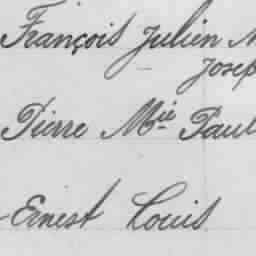 François Julien
Josep
Pierre Mie Paul
Ernest Louis